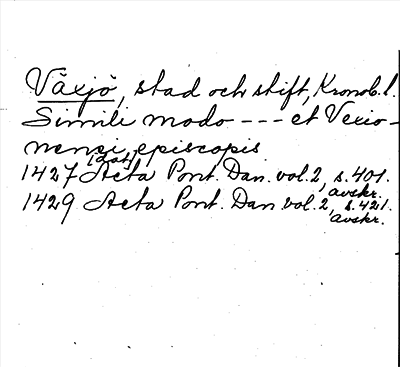 Växjö, stad och stift, Kronob. l.
Simili modo --- et Vexio-
nensi episcopis
1427 Acta Pont. Dan. vol. 2, s. 401.
avskr.
1429 Acta Pont. Dan. vol. 2, s. 421.
avskr.